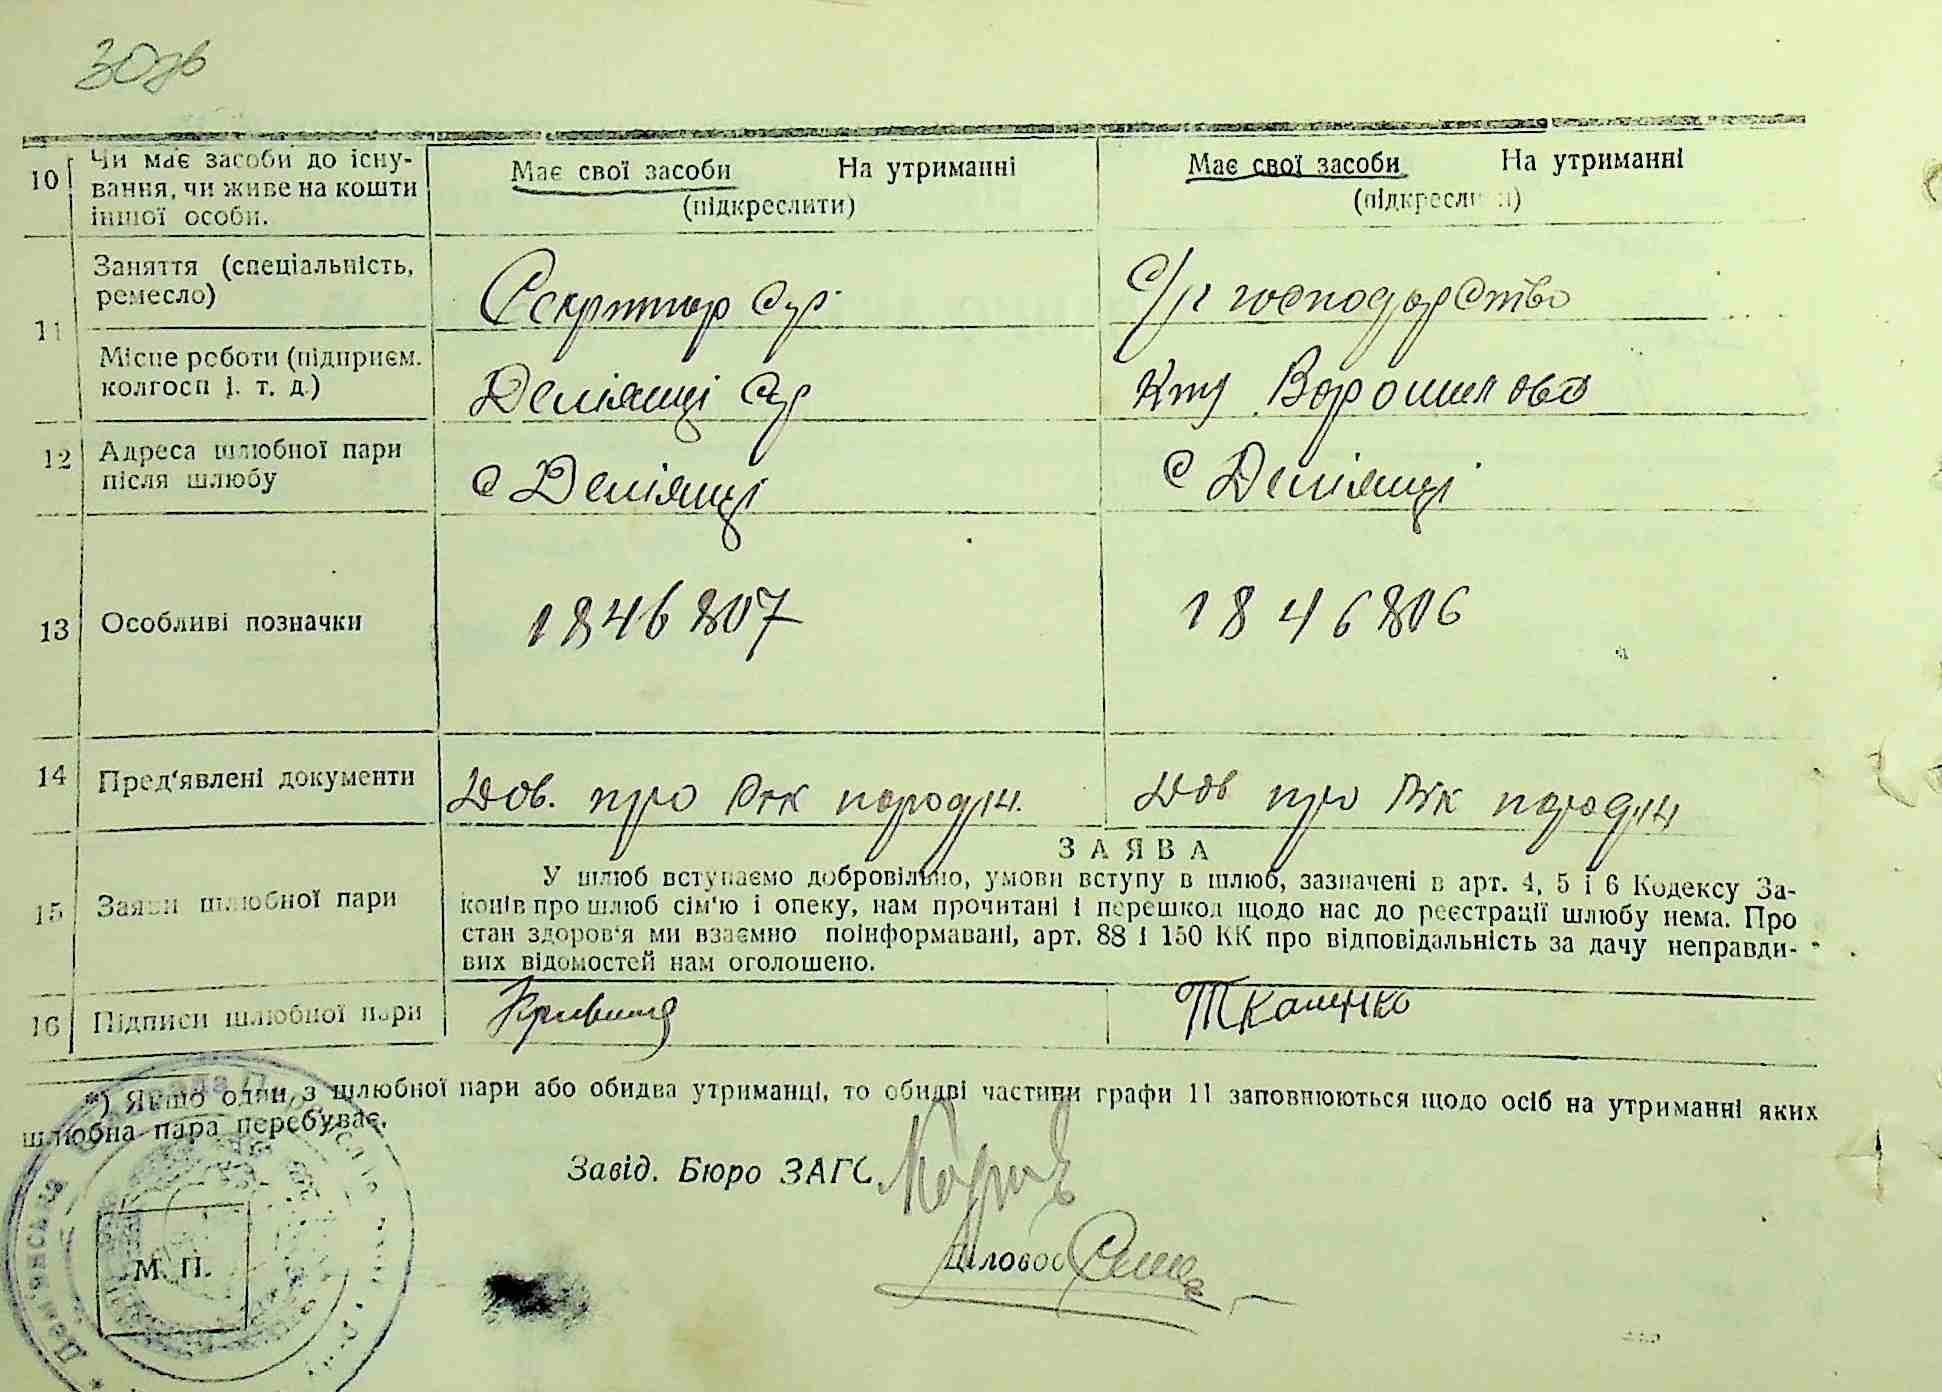 30 зв
10 Чи має засоби до існу-
вання, чи живе на кошти
іншої особи.
Має свої засоби На утриманні
(підкреслити)
Має свої засоби На утриманні
(підкреслити)
11 Заняття (спеціальність,
ремесло)
Секритар с/р
С/г господарство
Місце роботи (підприєм.
колгосп і. т. д.)
Деміянці с/р
Ворошилова
12 Адреса шлюбної пари
після шлюбу
с Деміянці
с Деміянці
13 Особливі позначки
1846807
1846806
14 Пред'явлені документи
Дов. про Рік народж.
Дов про Рік народж
15 Заяви шлюбної пари
ЗАЯВА
У шлюб вступаємо добровільно, умови вступу в шлюб, зазначені в арт. 4, 5 і 6 Кодексу За-
конів про шлюб сім'ю і опеку, нам прочитані і перешкод щодо нас до реєстрації шлюбу нема. Про
стан здоров'я ми взаємно поінформавані, арт. 88 і 150 КК про відповідальність за дачу неправди-
вих відомостей нам оголошено.
16 Підписи шлюбної пари
Ткаченко
*) Якщо один з шлюбної пари або обидва утриманці, то обидві частини графи 11 заповнюються щодо осіб на утриманні яких
шлюбна пара перебуває.
Завід. Бюро ЗАГС
Діловод
М. П.